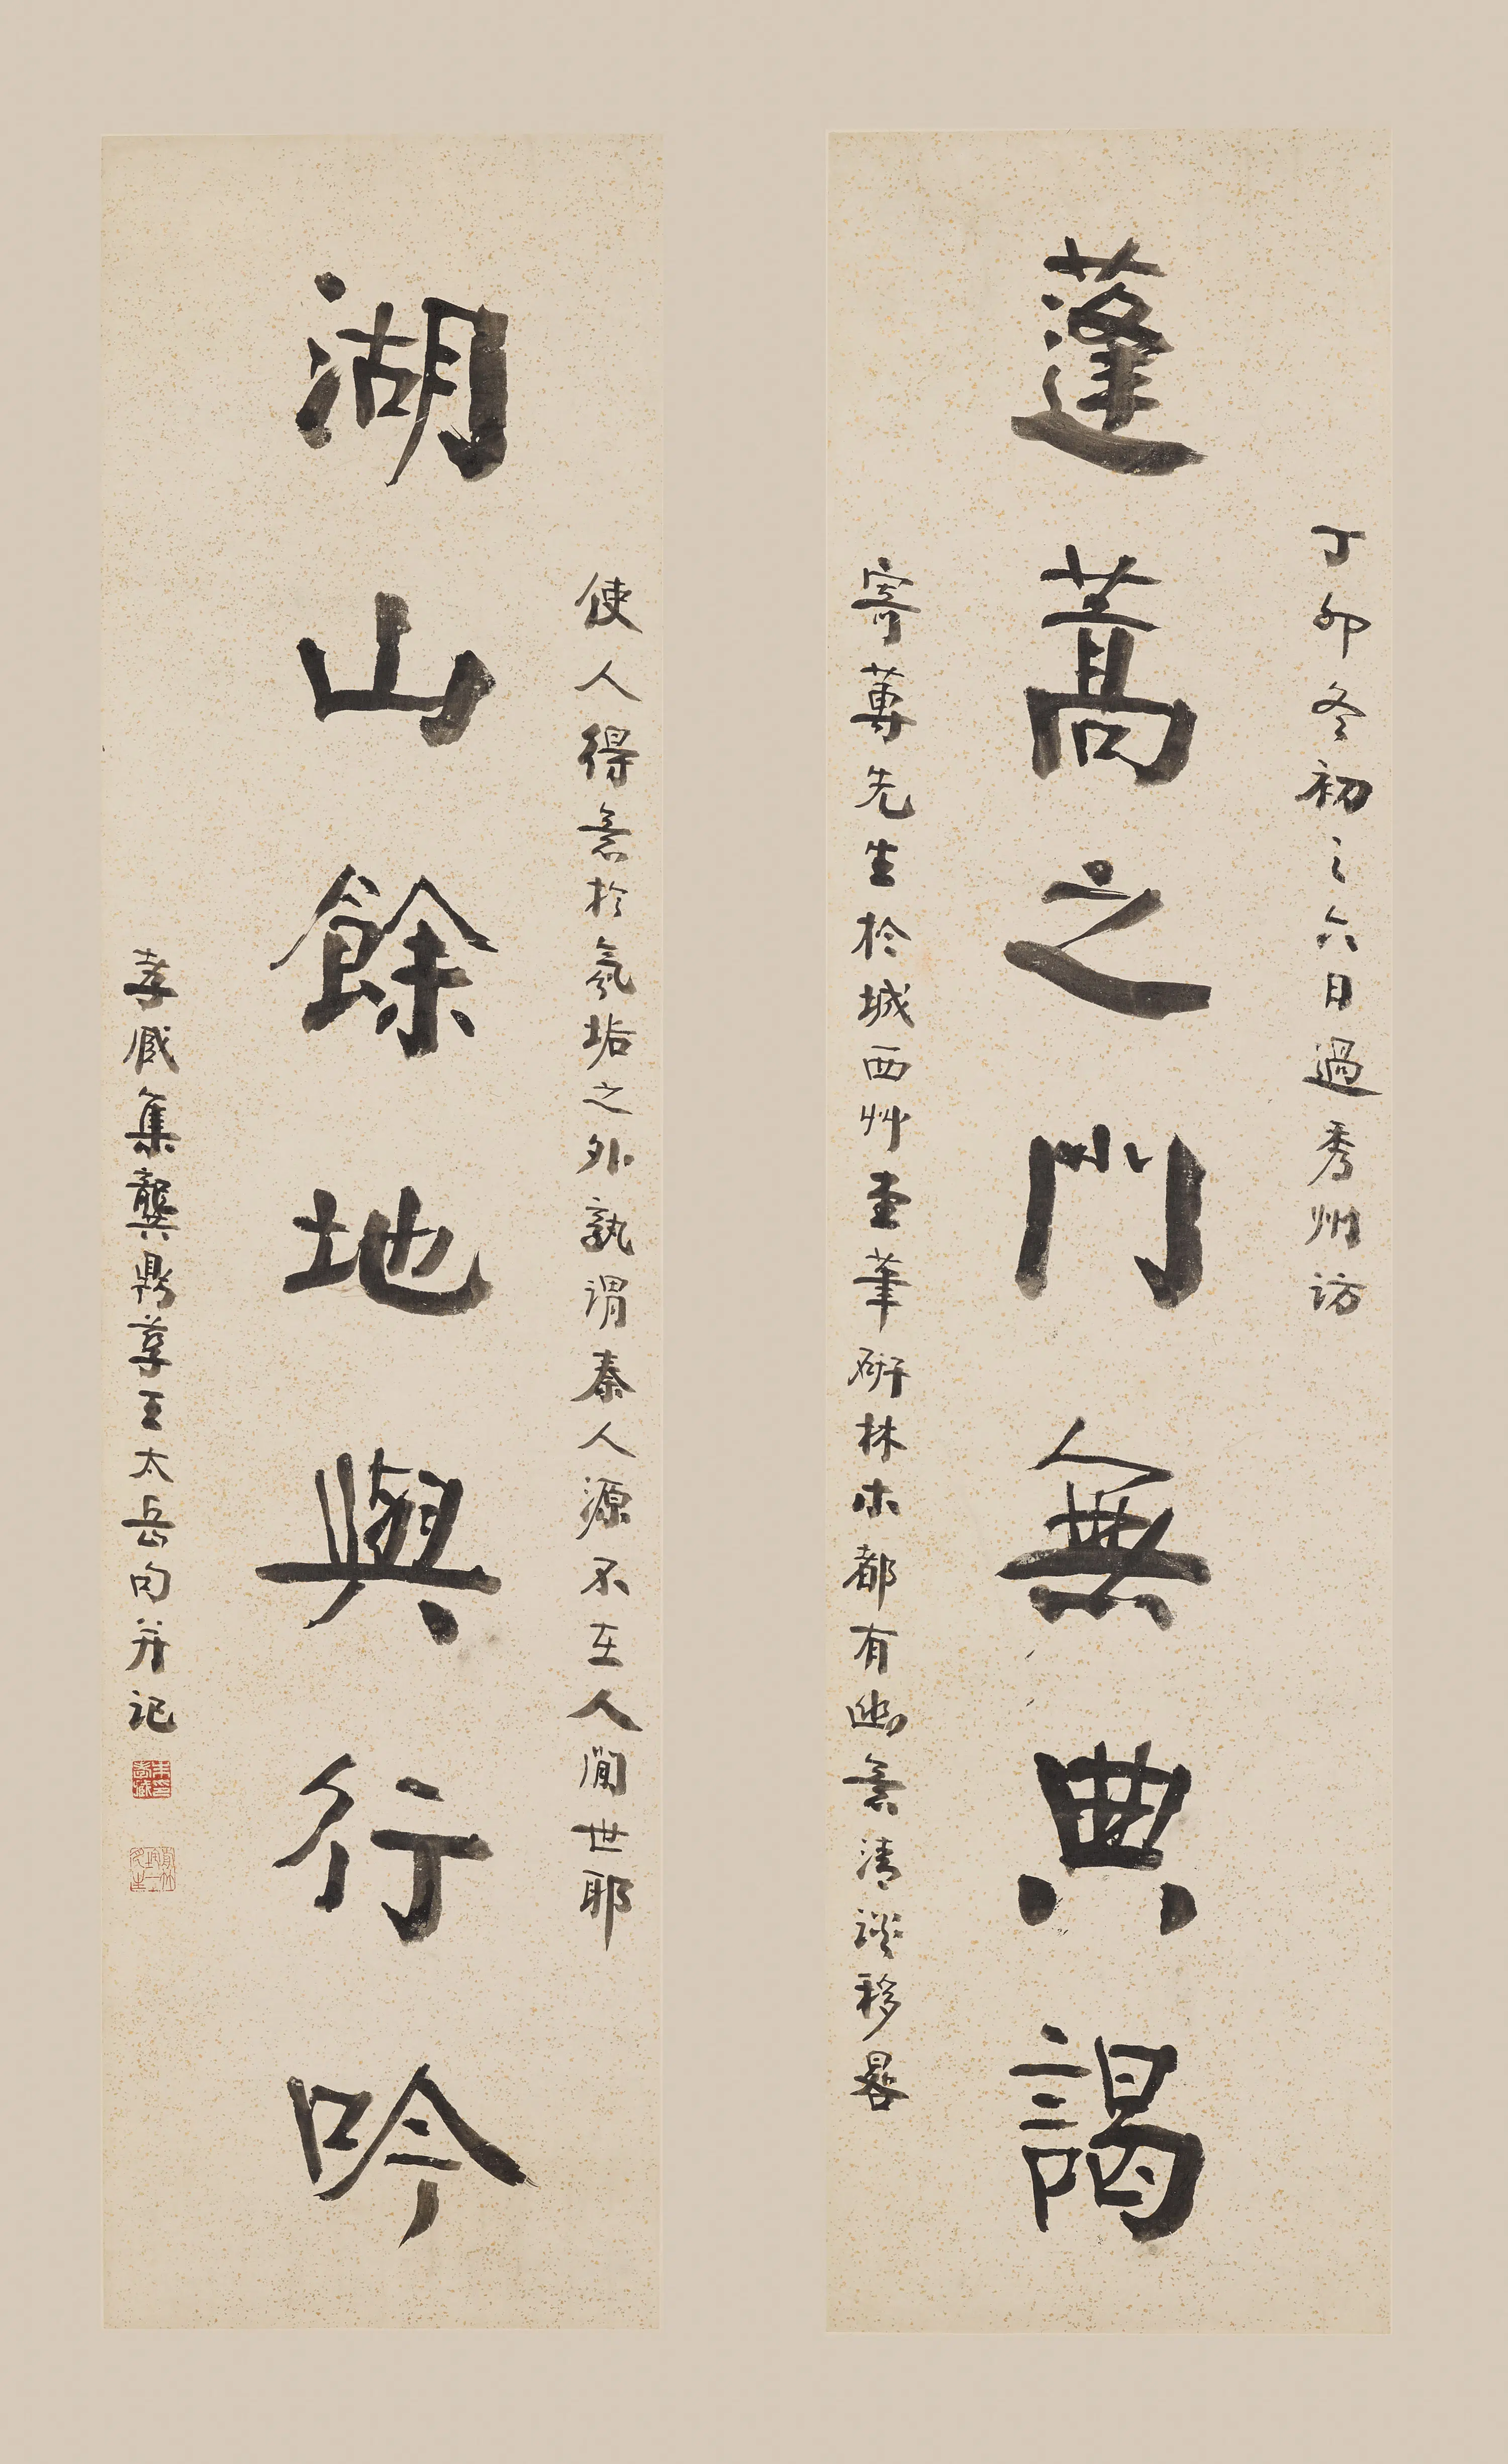 丁卯冬初之六日過秀州訪
蓬蒿之門無典謁
寄蓴先生於城西艸堂筆研林木都有幽意清談移晷
使人得意於氛垢之外孰謂秦人源不在人間世耶
湖山餘地與行吟
孝臧集龔鼎孳王太岳句并記
朱孝臧印